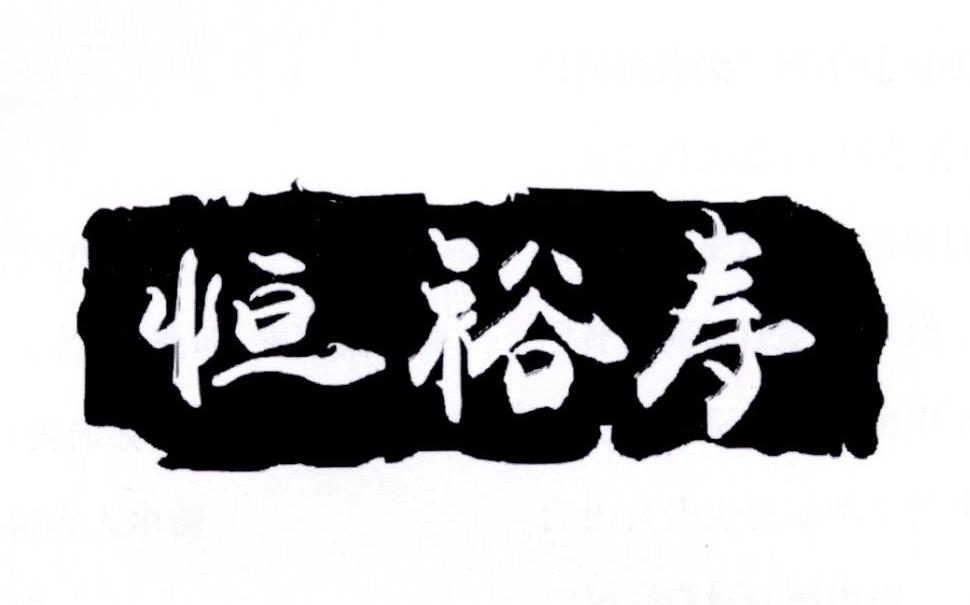 恒裕寿